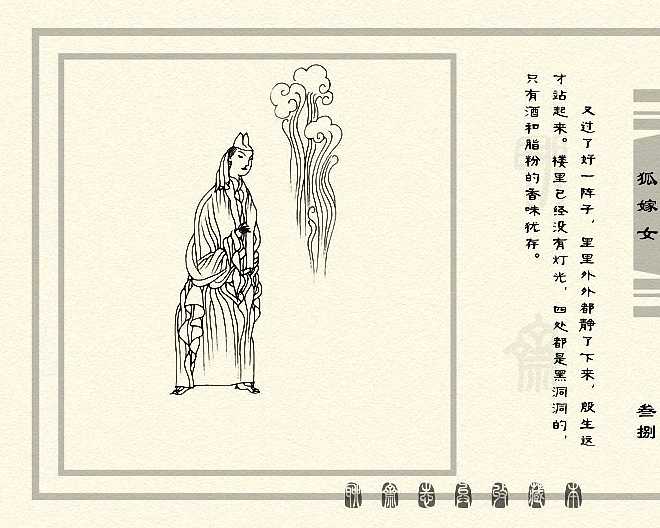 又过了好一阵子，里里外外都静了下来，殷生这
才站起来。楼里已经没有灯光，四处都是黑洞洞的，
只有酒和脂粉的香味犹存。
狐嫁女
叁捌